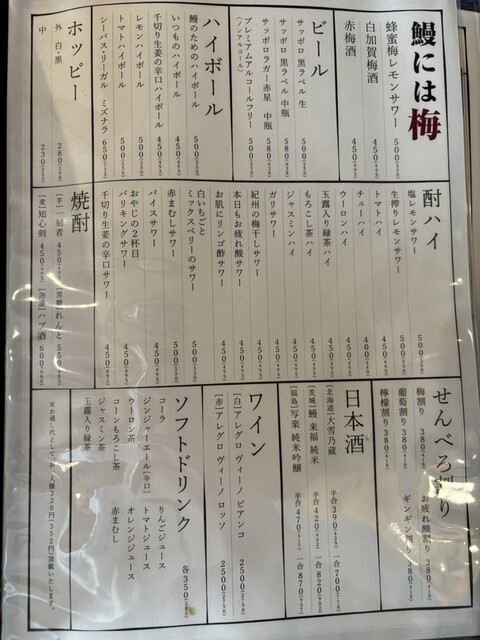 鰻には梅
蜂蜜梅レモンサワー 500
白加賀梅酒 450
赤梅酒 450
ビール
サッポロ 黒ラベル 生 500
サッポロ 黒ラベル 中瓶 580
サッポロラガー赤星 中瓶 580
プレミアムアルコールフリー 500
ハイボール
鰻のためのハイボール 500
いつものハイボール 450
千切り生姜の辛口ハイボール 500
レモンハイボール 500
トマトハイボール 500
シーバス・リーガル ミズナラ 650
ホッピー
外 白・黒 280
中 230
酎ハイ
塩レモンサワー 500
生搾りレモンサワー 500
トマトハイ
チューハイ 400
ウーロンハイ
玉露入り緑茶ハイ
もろこし茶ハイ
ジャスミンハイ
ガリサワー
紀州の梅干しサワー
本日もお疲れ酸サワー
お肌にリンゴ酢サワー 450
白いちごと
ミックスベリーのサワー 500
赤まむしサワー 500
バイスサワー 450
おやじの2杯目
バリキングサワー 450
千切り生姜の辛口サワー 450
焼酎
せんべろ割り
梅割り 380
葡萄割り 380
檸檬割り 380
お疲れ酸割り 380
ギンギン割り 380
日本酒
[北海道] 大雪乃蔵 半合390 一合700
[茨城] 鰻 来福 純米 半合420 一合820
[福島] 写楽 純米吟醸 半合470 一合870
ワイン
[白] アレグロ ヴィーノ ビアンコ 2500
[赤] アレグロ ヴィーノ ロッソ 2500
ソフトドリンク 各350
コーラ
ジンジャーエール[辛口]
ウーロン茶
コーンもろこし茶
ジャスミン茶
玉露入り緑茶
りんごジュース
トマトジュース
オレンジジュース
赤まむし
※お通し代として、お一人様320円(352円)頂戴いたします。